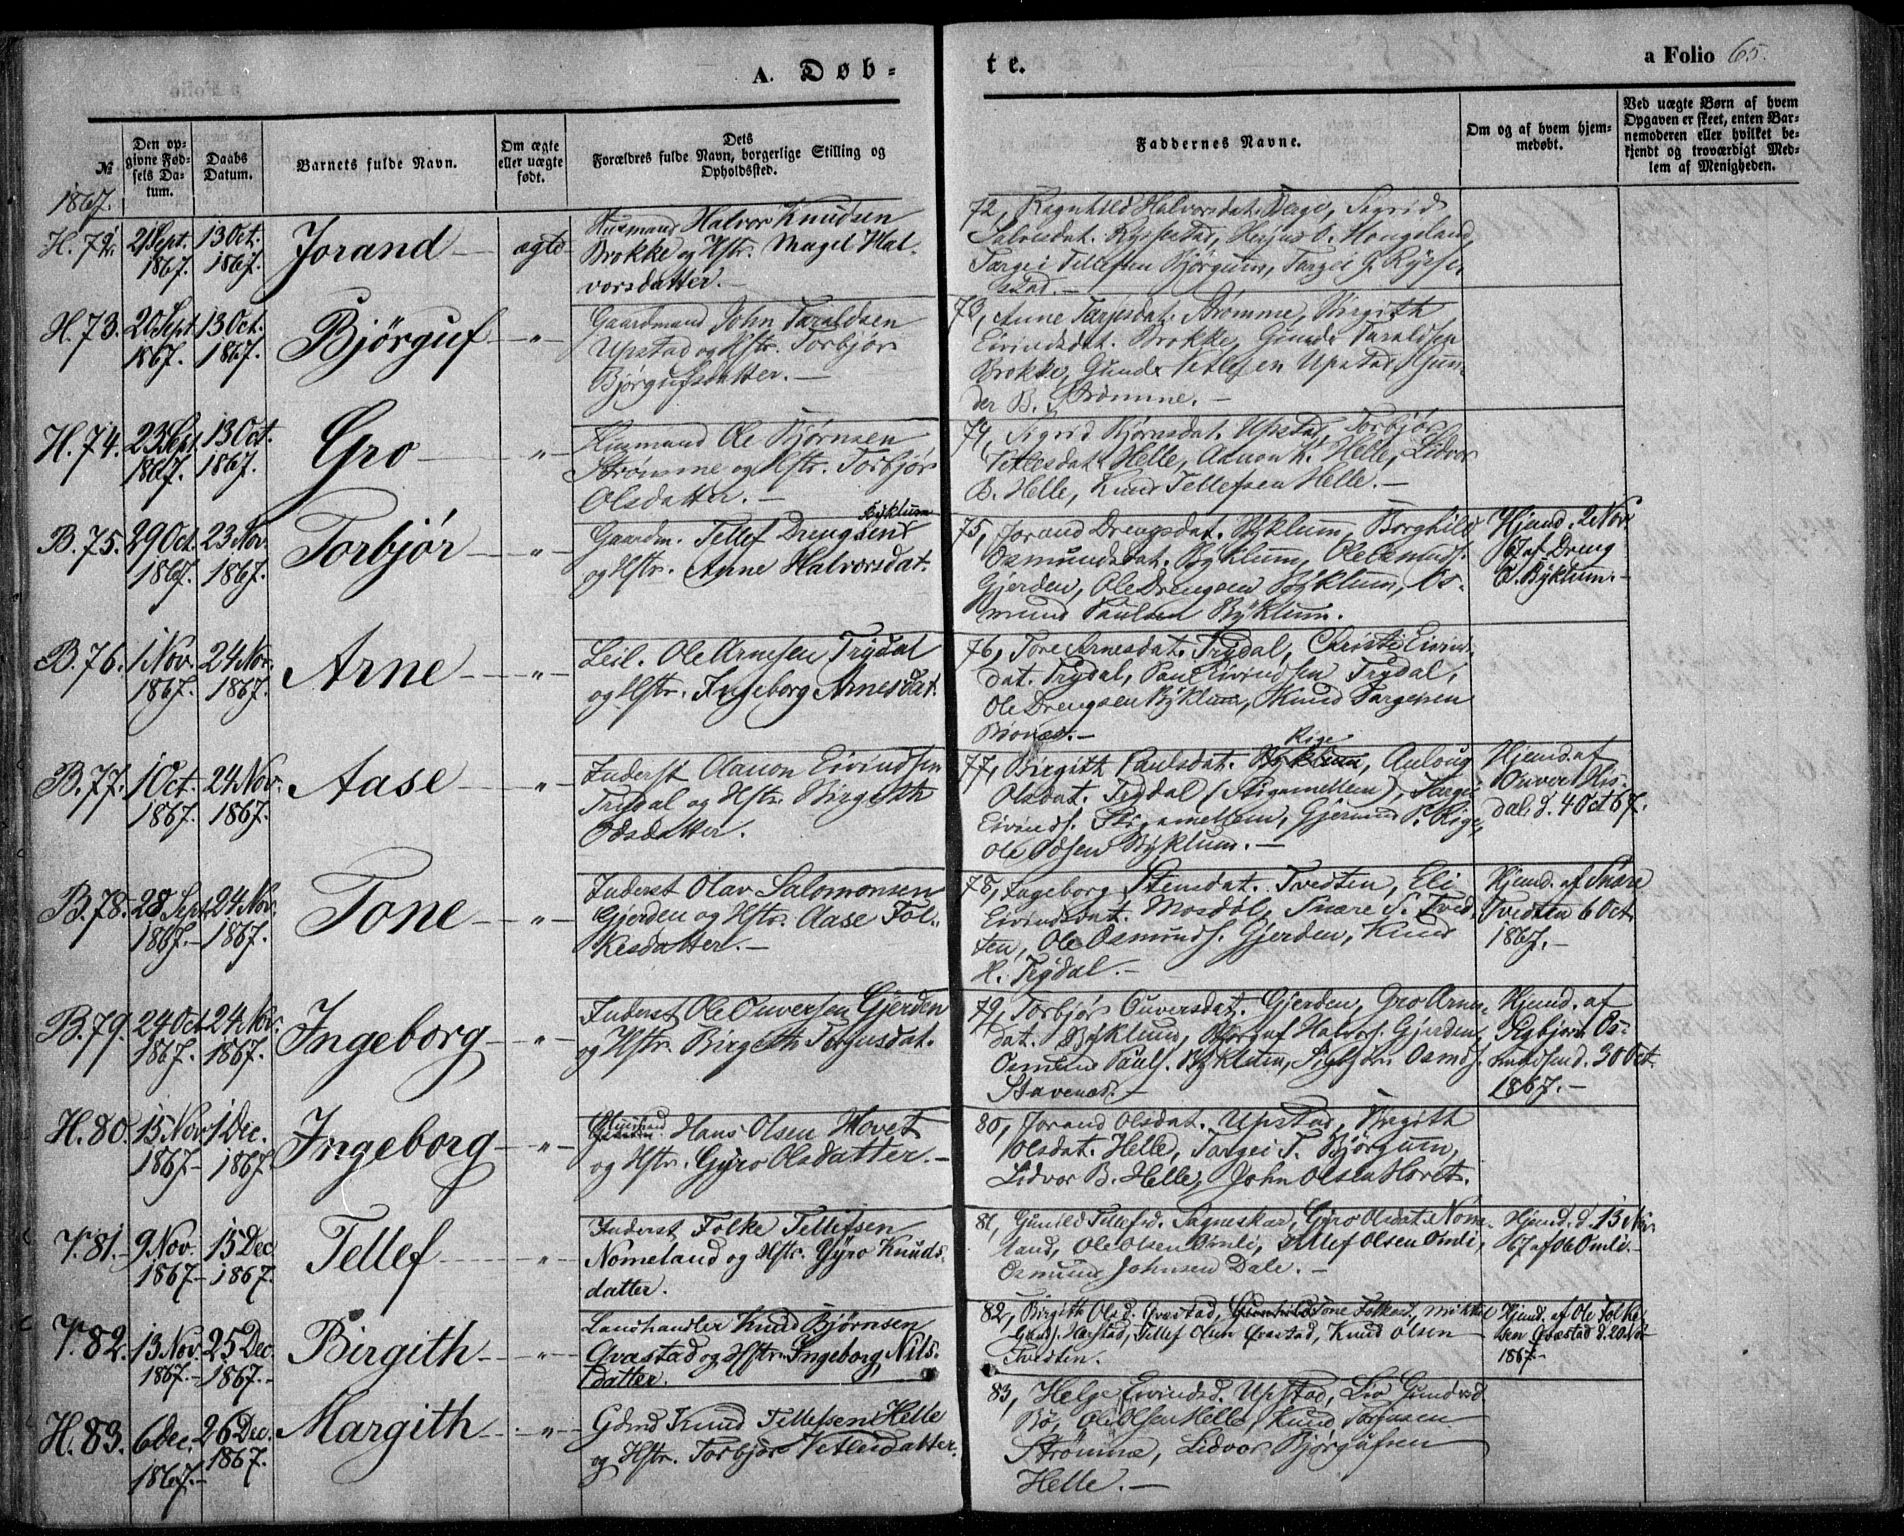 A. Døb-
te.
a Folio 65.
№
Den op-
givne Fød-
sels Da-
tum.
Daabs
Datum.
Barnets fulde Navn.
Om ægte
eller uægte
født.
Dets
Forældres fulde Navn, borgerlige Stilling og
Opholdssted.
Faddernes Navne.
Om og af hvem hjem-
medøbt.
Ved uægte Børn af hvem
Opgaven er skeet, enten Bar-
nemoderen eller hvilket be-
kjendt og troværdigt Med-
lem af Menigheden.
1867.
H. 72. 21 Sept. 1867. 13 Oct. 1867. Jorand ægte
Husmand Halvor Knudsen
Brokke og Hstr. Magil Hal-
vorsdatter.
72, Ragnhild Halvorsdat. Berge, Sigrid
Salvesdat. Rysstad, Herjus O. Hougeland,
Targei Tellefsen Bjørgum, Targei J. Rysse-
stad.
H. 73. 20 Sept 1867. 13 Oct. 1867. Bjørguf "
Gaardmand John Taraldsen
Upstad og Hstr. Torbjør
Bjørgufsdatter.
73, Anne Targesdat. Strømme, Birgith
Eivindsdat. Brokke, Gunder Taraldsen
Brokke, Gunder Vetlesen Upstad, Gun-
der B. Strømme.
H. 74. 23 Sept. 1867. 13 Oct. 1867. Gro "
Husmand Ole Bjørnsen
Strømme og Hstr. Torbjør
Olsdatter.
74, Sigrid Bjørnsdat. Upstad, Torbjør
Vetlesdat. Helle, Aanon K. Helle, Lidvor
B. Helle, Knud Tellefsen Helle.
B. 75. 29 Oct. 1867. 23 Nov. 1867. Torbjør "
Byklum
Gaardm. Tellef Drengsen
og Hstr. Anne Halvorsdat.
75, Jorand Drengsdat. Byklum, Borghild
Osmundsdat. Byklum, Ole Osmunds.
Gjerden, Ole Drengsen Byklum, Os-
mund Paulsen Byklum.
Hjemd. 2 Nov.
67 af Dreng
O. Byklum.
B. 76. 1 Nov. 1867. 24 Nov. 1867. Arne "
Leil. Ole Arnesen Trydal
og Hstr. Ingeborg Arnesdat.
76, Tore Arnesdat. Trydal, Christi Eivin-
dat. Trydal, Paul Eivindsen Trydal,
Ole Drengsen Byklum, Knud Targeisen
B. 77. 1 Oct. 1867. 24 Nov. 1867. Aase "
Inderst Aanon Eivindsen
Trydal og Hstr. Birgith
Odsdatter.
Rige
77, Birgith Paulsdat. Byklum, Aaloug
Olsdat. Trydal Targei
Eivinds. Gjermund P. Rige,
Ole Odsen Byklum.
Hjemd. af
Ouver His-
dal d. 4 Oct 67.
B. 78. 28 Sept 1867. 24 Nov. 1867. Tone "
Inderst Olav Salomonsen
Gjerden og Hstr. Aase Fol-
kesdatter.
78, Ingeborg Stensdat. Tvedten, Eli
Eivindsdat. Mosdøl, Snare S. Tved-
ten, Ole Osmunds. Gjerden, Knud
H. Trydal.
Hjemd. af Snare
Tvedten 6 Oct.
1867.
B. 79. 24 Oct 1867. 24 Nov. 1867. Ingeborg "
Inderst Ole Ouversen Gjerden
og Hstr. Birgith Torjusdat.
79, Torbjør Ouversdat. Gjerden, Gro Arne-
dat. Byklum, Halvors. Gjerden,
Osmund Pauls. Byklum, Sigbjørn Osmds.
Stavenæs.
Hjemd. af
Sigbjørn Os-
mundsen d. 30 Oct
1867.
H. 80. 15 Nov 1867. 1 Dec. 1867. Ingeborg "
Hans Olsen Hovet
og Hstr. Gyro Olsdatter.
80, Jorand Olsdat. Upstad, Birgith
Olsdat. Helle, Targei T. Bjørgum,
Lidvor B. Helle, John Olsen Hovet.
V. 81. 9 Nov. 1867. 15 Dec 1867. Tellef "
Inderst Folke Tellefsen
Nomeland og Hstr. Gyro Knuds-
datter.
81, Gunild Tellefsd. Sagneskar, Gyro Olsdat. Nome-
land, Ole Olsen Omli, Tellef Olsen Omli,
Osmund Johnsen Dale.
Hjemd. d. 13 Nov.
67 af Ole Omli.
V. 82. 13 Nov. 1867. 25 Dec 1867. Birgith "
Landhandler Knud Bjørnsen
Qvæstad og Hstr. Ingeborg Nils-
datter.
82, Birgith Olsd. Qvæstad, Tone Folkesd, Mikkel
Gunds. Harstad, Tellef Olsen Qvæstad, Knud Olsen
Tvedten.
Hjemd. af Ole Folke-
sen Qvæstad d. 20 Nov
1867.
H. 83. 6 Dec. 1867. 26 Dec. 1867. Margith "
Gdmd Knud Tellefsen Helle
og Hstr. Torbjør Vetlesdatter.
83, Helge Eivindsd. Upstad, Liv Gundersd
Bø, Ole Olsen Helle, Knud Torgusen
Strømme, Lidvor Bjørgufsen
Helle.